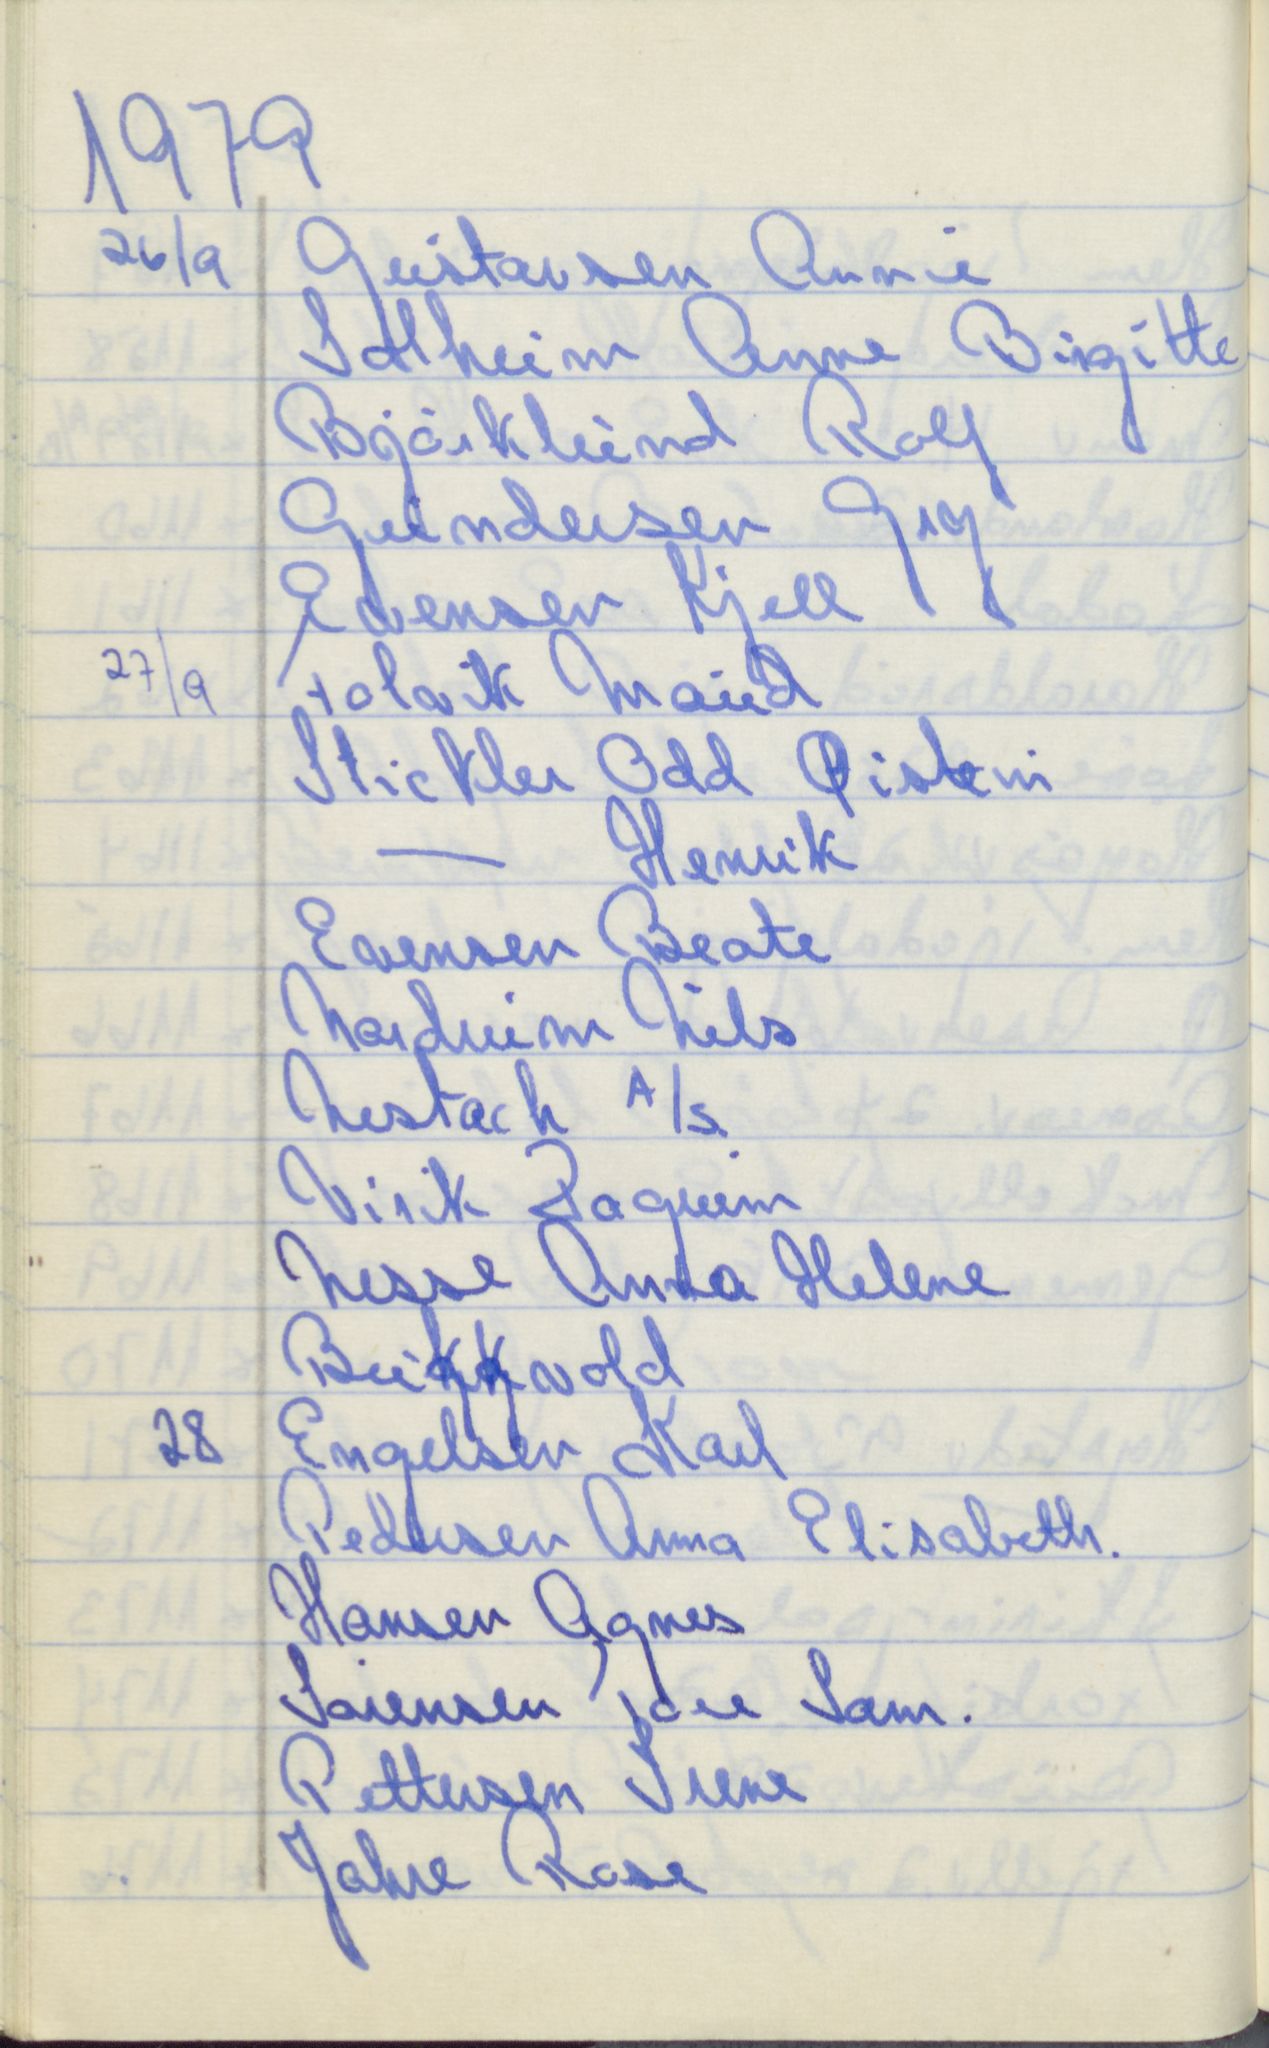 1979
26/9 Gustavsen Annie
Solheim Anne Birgitte
Björklund Rolf
Gundersen Gry
Evensen Kjell
27/9 Folvik Maud
Stickler Odd Øistein
— Henrik
Evensen Beate
Nordheim Nils
Nestach A/s.
Virik Zaquim
Nesse Anna Helene
Buikkvold
28 Engelsen Karl
Pedersen Anna Elisabeth.
Hansen Agnes
Sörensen Tove Sam.
Pettersen Irene
Jahre Rose